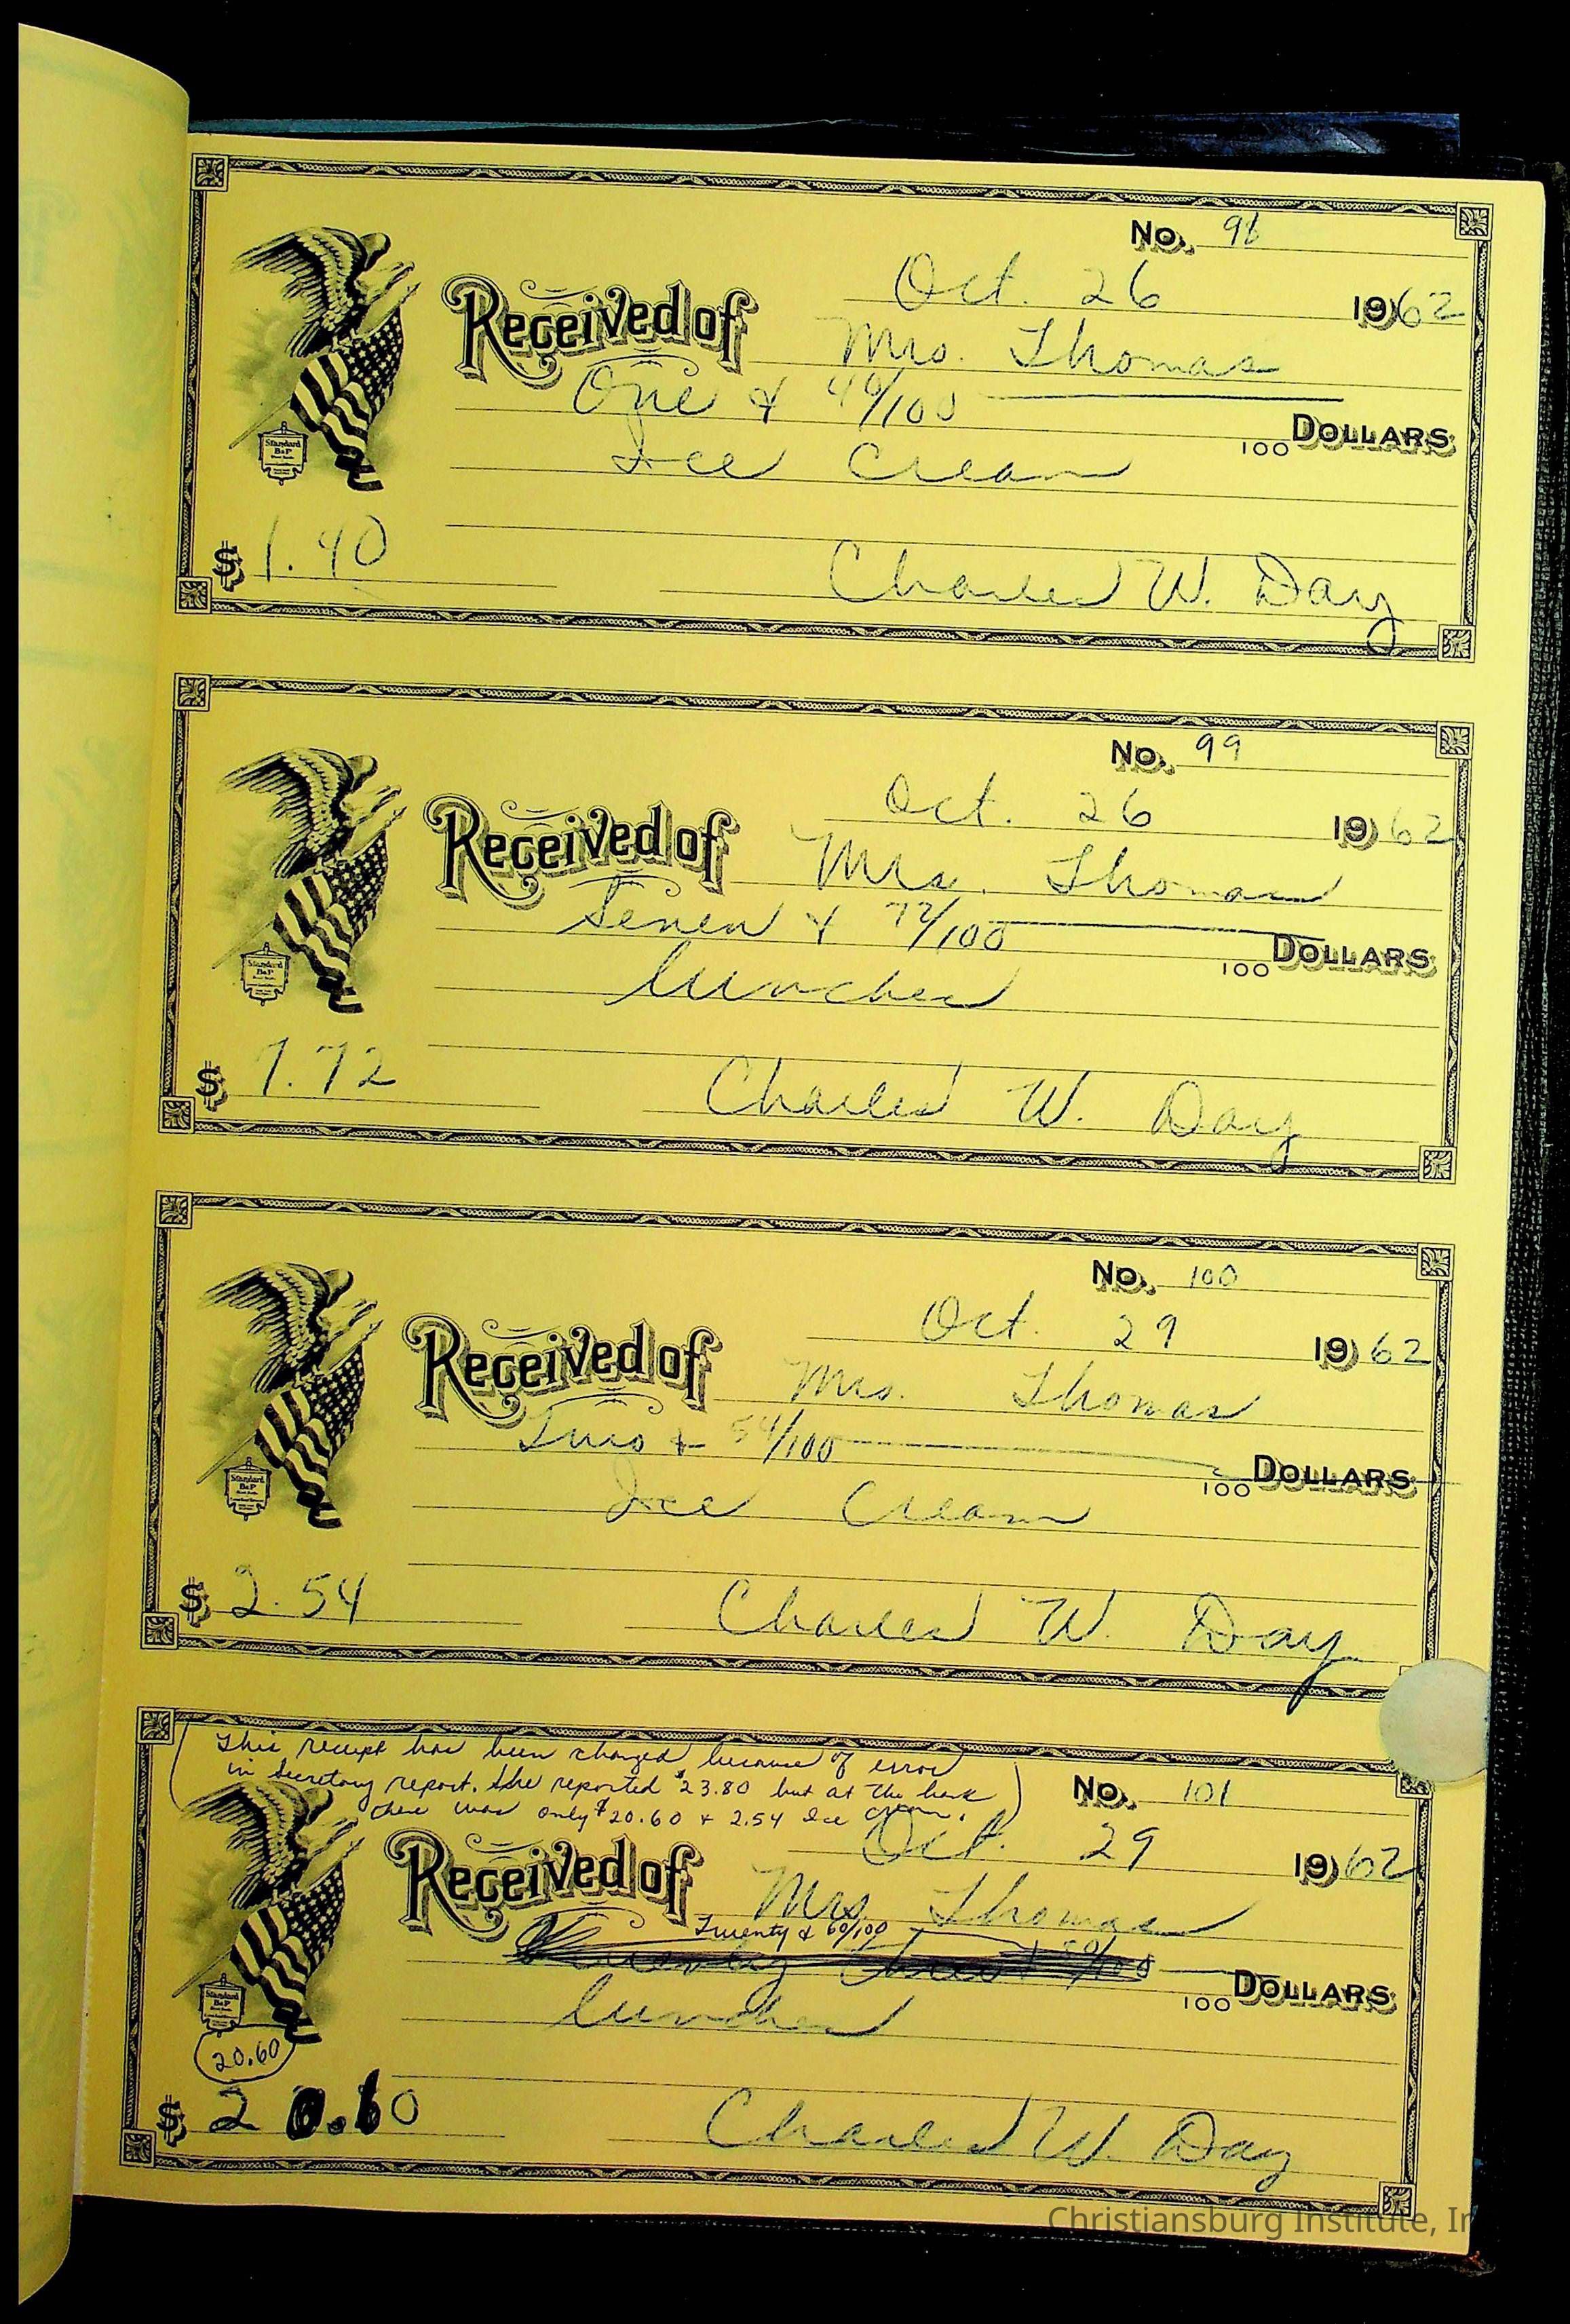 No. 98
Oct. 26 1962
Received of Mrs. Thomas
One & 40/100
100 DOLLARS
Ice Cream
Standard
B&P
$ 1.40
Charles W. Day
No. 99
Oct. 26 1962
Received of Mrs. Thomas
Seven & 72/100
100 DOLLARS
lunches
Standard
B&P
$ 7.72
Charles W. Day
No. 100
Oct. 29 1962
Received of Mrs. Thomas
Two & 54/100
100 DOLLARS
Ice Cream
Standard
B&P
$ 2.54
Charles W. Day
This receipt has been changed because of error
in Secretary report. She reported $23.80 but at the bank
there was only $20.60 & 2.54 Ice cream.
No. 101
Oct. 29 1962
Received of Mrs. Thomas
Twenty & 60/100
100 DOLLARS
lunches
Standard
B&P
20.60
$ 20.60
Charles W. Day
Christiansburg Institute, In